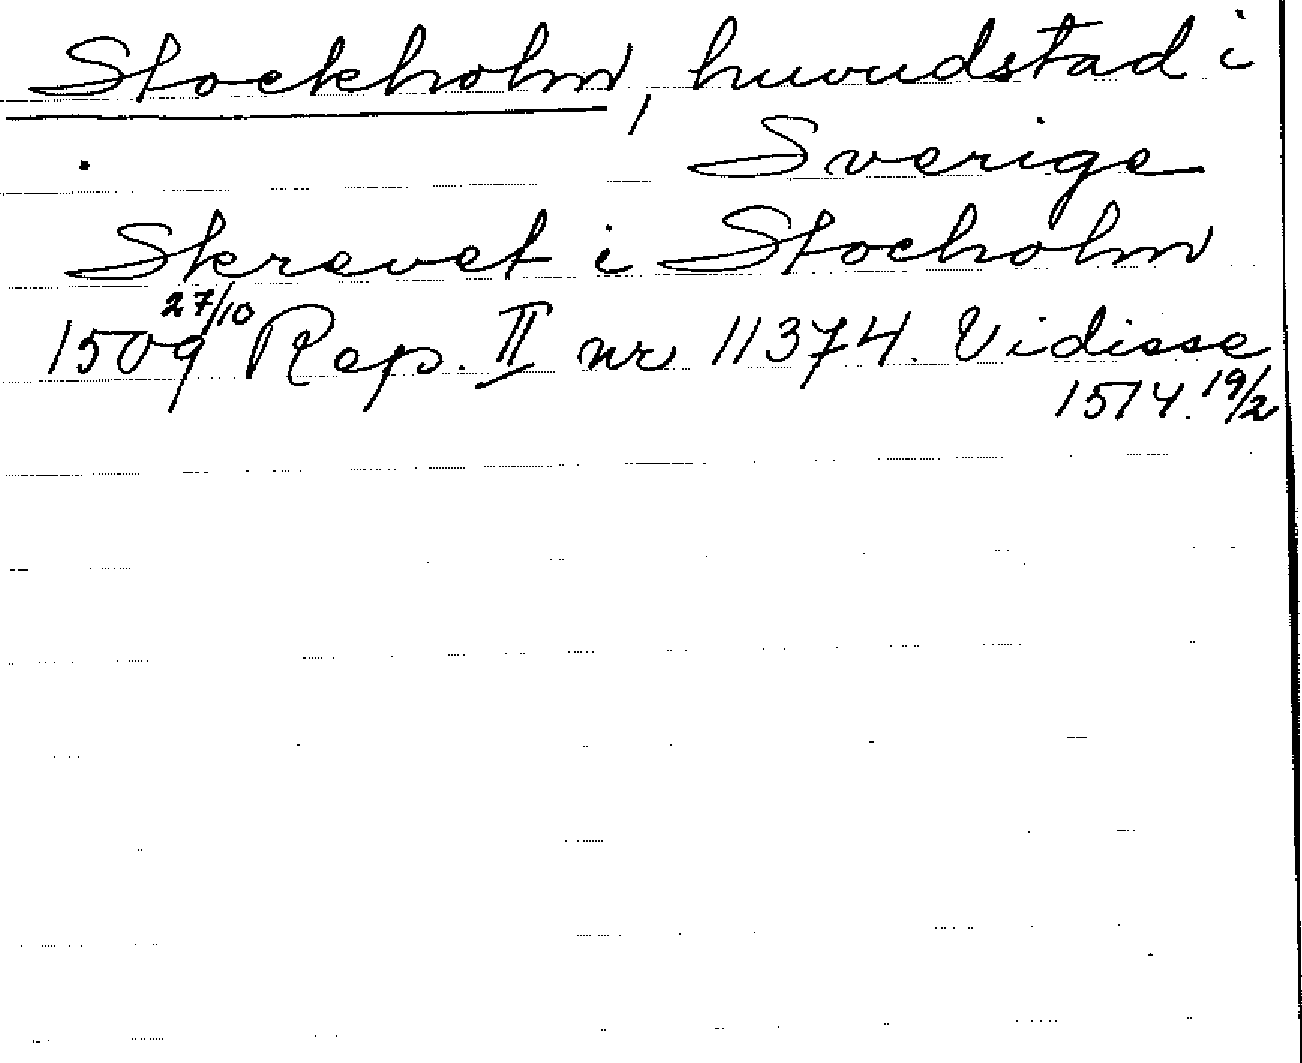 Stockholm, huvudstad i
Sverige
Skrevet i Stocholm
1509 27/10 Rep. II nr 11374. Vidisse
1514. 19/2